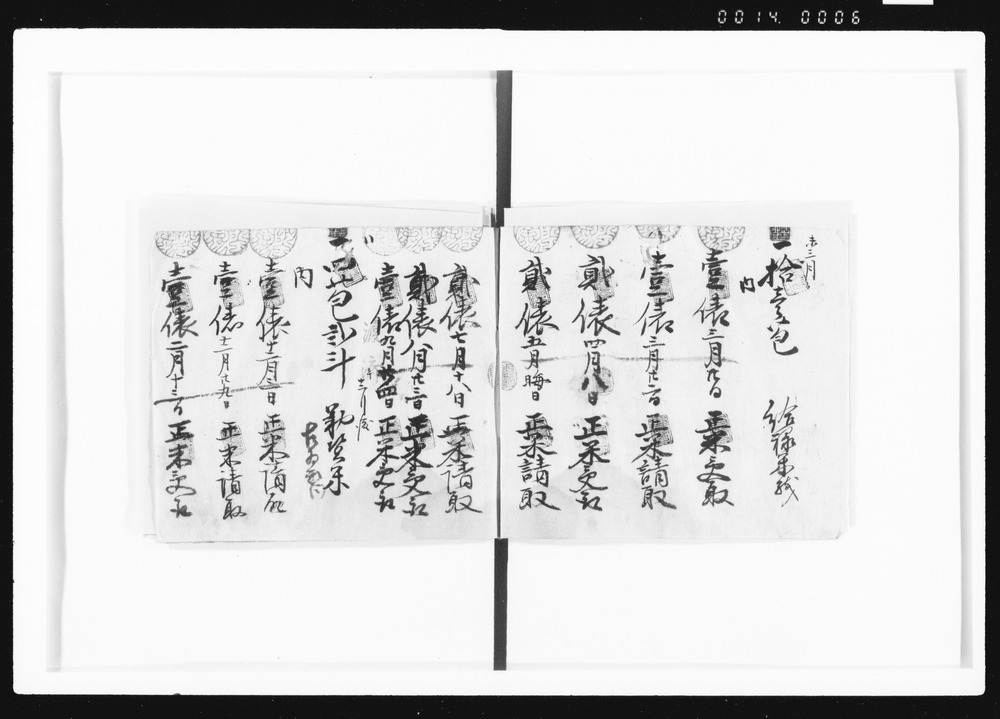 0014.0006
未三月
一拾壱包 給禄米残
内
壹俵三月 正米受取
壹俵三月廿六日 正米請取
貮俵四月八日 正米受取
貮俵五月晦日 正米請取
貮俵七月十八日 正米請取
貮俵八月廿三日 正米受取
壹俵九月廿四日 正米受取
渡 十二月渡
一四包弐斗
内
壹俵十二月三日 正米請取
壹俵十二月廿九日 正米請取
壹俵二月十三日 正米受取